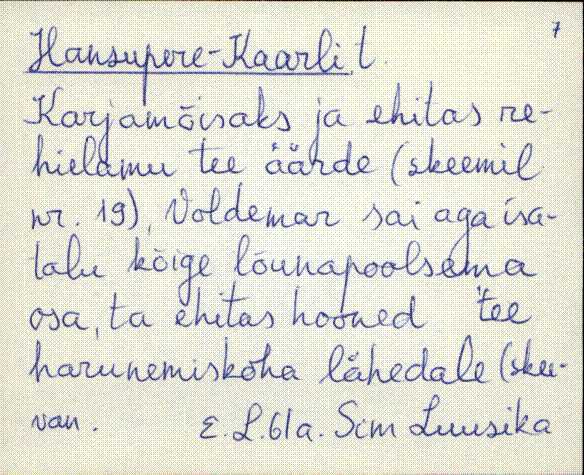 7
Hansupere-Kaarli, t.
Karjamõisaks ja ehitas re-
hielamu tee äärde (skeemil
nr. 19), Voldemar sai aga isa-
talu kõige lõunapoolsema
osa, ta ehitas hooned tee
harunemiskoha lähedale (skee-
van. E. L. 61a. Sim Luusika